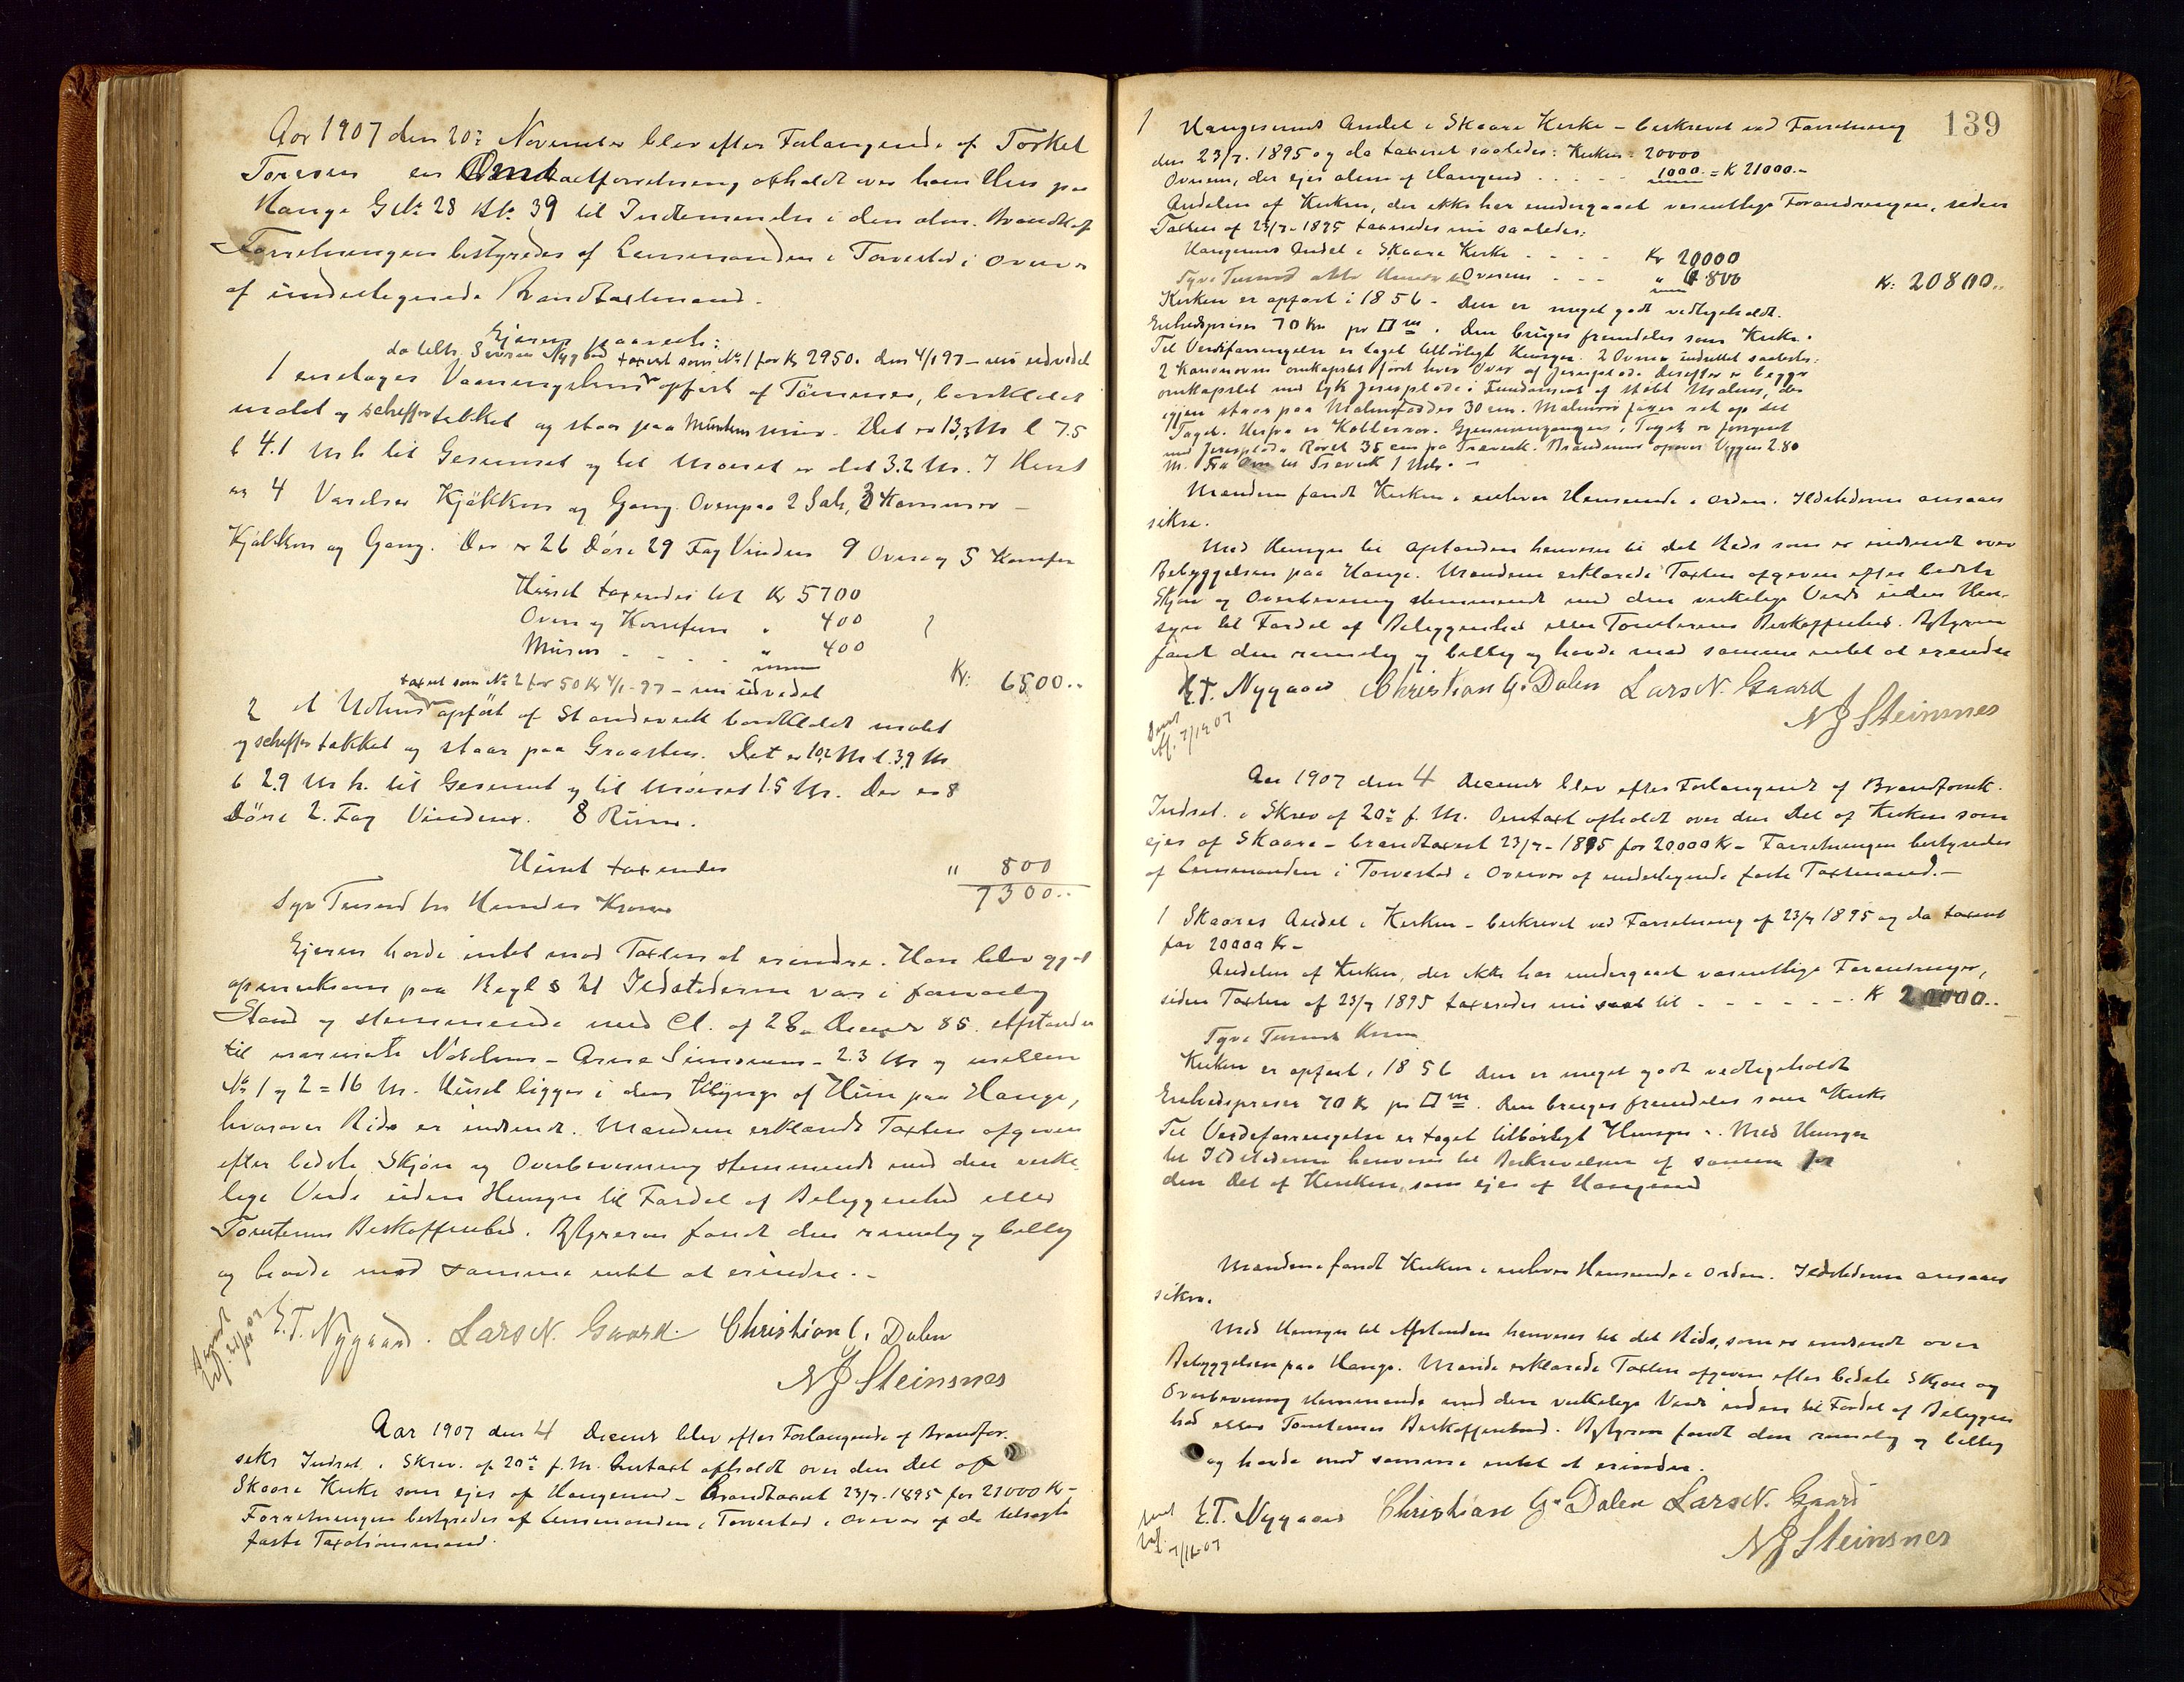 Aar 1907 den 20de November blev efter Forlangende af Torkel
Toresen en Omtaxtforretning afholdt over hans Hus paa
Hauge G.No 28 B.No 39 til Indtemmelse i den alm. Brandkasse
Forretningen bestyredes af Lensmanden i Torvestad i Overvær
af undertegnede Brandtaxtmænd.
Ejeren paaviste:
da tilh. Sveren Nygaard taxeret som No 1 for Kr 2950. den 4/1 97 - nu udvidet
1 en etages Vaaningshus opført af Tømmer, bordklædt
malet og schiffertækket og staar paa Murstensmur. Det er 13,3 M l 7.5
b 4.1 M h til Gesimset og til Mønet er det 3.2 M. I Huset
er 4 Værelser Kjøkken og Gang. Ovenpaa 2 Sale, 3 Kammer
Kjøkken og Gang. Der er 26 Døre 29 Fag Vinduer 9 Ovne og 5 Komfur
Huset taxeredes til Kr 5700
Ovne og Komfurer " 400
Muren " 400
Kr: 6500..
taxert som No 2 for 50 Kr 4/1 - 97 - nu udvidet
2 et Udhus opført af Standeverk bordklædt malt
og schiffertækket og staar paa Graasten. Det er 10,2 M l. 3,9 M
b 2.9 M h. til Gesimset og til Mønet 1.5 M. Der er 8
Døre 2. Fag Vinduer. 8 Rum.
Huset taxeredes " 800
Syv Tusind tre Hundre Kroner 7300..
Ejeren havde intet mod Taxten at erindre. Han blev gjort
opmerksom paa Regl § 21 Ildstederne var i forsvarlig
Stand og stemmende med Cl. af 28. Decembr 85. Afstanden
til nærmeste Nabohus - Arne Simonsens - 2.3 M og mellem
No 1 og 2 = 16 M. Huset ligger i den Klynge af Huse paa Hauge,
hvorover Rids er indsendt. Mændene erklærede Taxten afgiven
efter bedste Skjøn og Overbevisning stemmende med den virke-
lige Værdi uden Hensyn til Fordel af Beliggenhed eller
Tomternes Beskaffenhed. Bestyreren fandt den rimelig og billig
og havde mod samme intet at erindre.-
E.T. Nygaard. Lars N. Gaard. Christian G. Dalen
N J Steinsnes
Aar 1907 den 4 Decembr blev efter Forlangende af Brandfor.
sikr Indret. i Skriv. af 20de f. M. Omtaxt afholdt over den Del af
Skaare Kirke som ejes af Haugesund - Brandtaxeret 23/7 - 1895 for 21000 Kr -
Forretningen bestyredes af Lensmanden i Torvestad i Overvær af de tilsagte
faste Taxationsmænd.
139
1 Haugesunds Andel i Skaare Kirke - beskrevet ved Forretning
den 23/7. 1895 og da taxeret saaledes: Kirken: 20000
Ovnene, der ejes alene af Haugesund . . . . . 1000 = K 21000.-
Andelen af Kirken, der ikke har undergaaet væsentlige Forandringer, siden
Taxten af 23/7 - 1895 taxeredes nu saaledes:
Haugesunds Andel i Skaare Kirke . . . . Kr 20000
Tyve Tusind otte Hundre Ovnene . . . " 800 Kr: 20800..
Kirken er opført i 1856 - Den er meget godt vedligeholdt.
Enhedspriser 70 Kr pr □ m. Den bruges fremdeles som Kirke.
Til Verdiforringelse er taget tilbørligt Hensyn. 2 Ovner indsattet saaledes:
2 Kanonovne omkapslet først hver Ovn af Jernplade. Derefter er begge
omkapslet med tyk Jernplade i Fundament af støbt Malm, der
igjen staar paa Malmfødder 30 cm. Malmrør fører ret op til
Taget. Herfra er Kobberrør. Gjennemgangen i Taget er foringet
med Jernplade Røret 35 cm fra Træverk. Brandmur opover Væggen 2.80
M. Fra Ovn til Træverk 1 Mtr. -
Mændene fandt Kirken i enhver Henseende i Orden. Ildstederne ansaaes
sikre.
Med Hensyn til Afstanden henvises til det Rids som er indsendt over
Bebyggelsen paa Hauge. Mændene erklærede Taxten afgiven efter bedste
Skjøn og Overbevisning stemmende med den virkelige Værdi uden Hen-
syn til Fordel af Beliggenhed eller Tomternes Beskaffenhed. Bestyreren
fandt den rimelig og billig og havde mod samme intet at erindre
E.T. Nygaard Christian G. Dalen Lars N. Gaard
N J Steinsnes
Aar 1907 den 4 Decembr blev efter Forlangende af Brandforsik.
Indret. i Skriv af 20de f. M. Omtaxt afholdt over den Del af Kirken som
ejes af Skaare - brandtaxeret 23/7 - 1895 for 20.000 Kr - Forretningen bestyredes
af Lensmanden i Torvestad i Overvær af undertegnede faste Taxtmænd.-
1 Skaares Andel i Kirken - beskrevet ved Forretning af 23/7 1895 og da taxeret
for 20000 Kr -
Andelen af Kirken, der ikke har undergaaet væsentlige Forandringer,
siden Taxten af 23/7 1895 taxeredes nu til - - - - - - . Kr 20000..
Tyve Tusind Kroner
Kirken er opført i 1856 Den er meget godt vedligeholdt
Enhedspriser 70 Kr pr □ m. Den bruges fremdeles som Kirke
Til Verdiforringelse er taget tilbørligt Hensyn -. Med Hensyn
til Ildstederne henvises til Beskrivelsen af samme for
den Del af Kirken, som ejes af Haugesund
Mændene fandt Kirken i enhver Henseende i Orden. Ildstederne ansaaes
sikre.
Med Hensyn til Afstanden henvises til det Rids, som er indsendt over
Bebyggelsen paa Hauge. Mændene erklærede Taxten afgiven efter bedste Skjøn og
Overbevisning stemmende med den virkelige Værdi uden til Fordel af Beliggen-
hed eller Tomternes Beskaffenhed. Bestyreren fandt den rimelig og billig
og havde mod samme intet at erindre.
E.T. Nygaard Christian G. Dalen Lars N. Gaard
7/12-07
N J Steinsnes